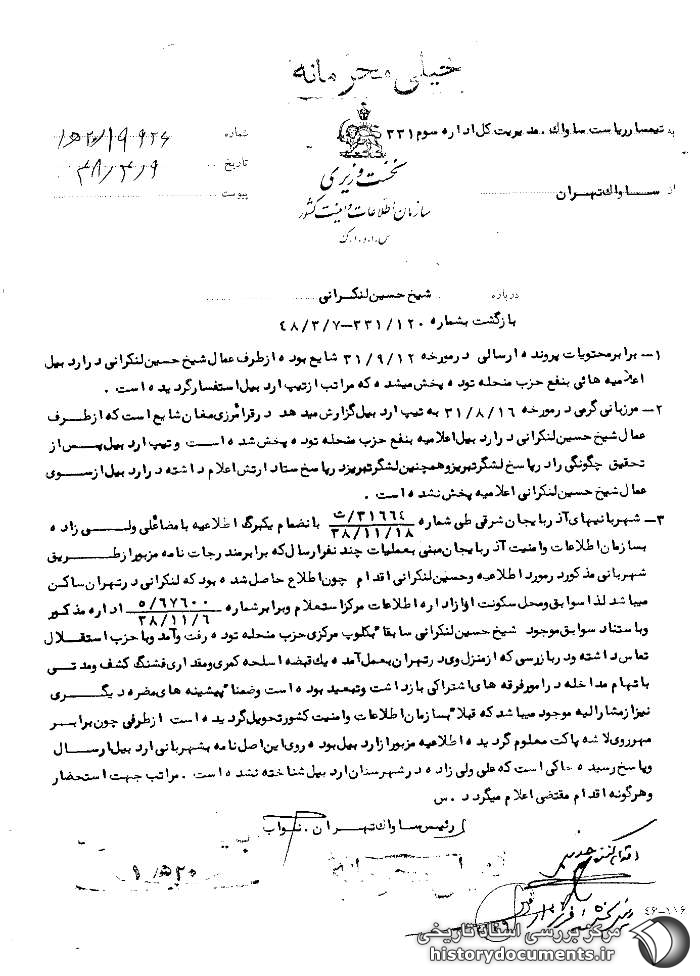 خیلی محرمانه
به تیمسار ریاست ساواك . مدیریت کل اداره سوم ۳۳۱
نخست وزیری
سازمان اطلاعات و امنیت کشور
س.ا.و.ا.ك
شماره
تاریخ ۴۸/۳/۹
پیوست
از ســاواك تهـران
درباره شیخ حسین لنکرانی
بازگشت بشماره ۳۳۱/۱۲۰–۴۸/۳/۷
۱– برابر محتویات پرونده ارسالی درمورخه ۳۱/۹/۱۲ شایع بوده ازطرف عمال شیخ حسین لنکرانی در اردبیل
اعلامیه هائی بنفع حزب منحله توده پخش میشده که مراتب ازتیپ اردبیل استفسار گردیده است .
۲– مرزبانی گرمی درمورخه ۳۱/۸/۱۶ به تیپ اردبیل گزارش میدهد درقراء مرزی مغان شایع است که ازطرف
عمال شیخ حسین لنکرانی در اردبیل اعلامیه بنفع حزب منحله توده پخش شده است وتیپ اردبیل پس از
تحقیق چگونگی را در پاسخ لشگر تبریز وهمچنین لشگر تبریز در پاسخ ستاد ارتش اعلام داشته در اردبیل از سـوی
عمال شیخ حسین لنکرانی اعلامیه پخش نشده است .
۳– شهربانیهای آذربایجان شرقی طی شماره ۳۱۶۶۴/ث ۳۸/۱۱/۱۸ بانضمام یکبرگ اطلاعیه بامضا علی ولـی زاده
بسازمان اطلاعات وامنیت آذربایجان مبنی بعملیات چند نفر ارسال که برابر مندرجات نامه مزبور از طـریق
شهربانی مذکور درمورد اطلاعیه وحسین لنکرانی اقدام چون اطلاع حاصل شده بود که لنکرانی درتهران ساکن
میباشد لذا سوابق ومحل سکونت اواز اداره اطلاعات مرکز استعلام وبرابر شماره ۵/۶۷۶۰۰ ۳۸/۱۱/۶ اداره مذکور
وباستناد سوابق موجود شیخ حسین لنکرانی سابقا بکلوپ مرکزی حزب منحله توده رفت وآمد وباحزب استقلال
تماس داشته ودر بازرسی که ازمنزل وی درتهران بعمل آمده یك قبضه اسلحه کمری ومقداری فشنگ کشف ومدتی
باتهام مداخله درامور فرقه های اشتراکی بازداشت وتبعید بوده است وضمنا پیشینه های مضره دیـگـری
نیز ازمشارالیه موجود میباشد که قبلا بسازمان اطلاعات وامنیت کشور تحویل گردیده است ازطرفی چون برابـر
مهرروی لاشه پاکت معلوم گردیده اطلاعیه مزبور ازاردبیل بوده روی این اصل نامه بشهربانی اردبیل ارسـال
وپاسخ رسیده حاکی است که علی ولی زاده درشهرستان اردبیل شناخته نشده است . مراتب جهت استحضار
وهرگونه اقدام مقتضی اعلام میگردد . س
رئیس ساواك تهـران . نواب
۴۶–۱۱۶
مرکز بررسی اسناد تاریخی
historydocuments.ir